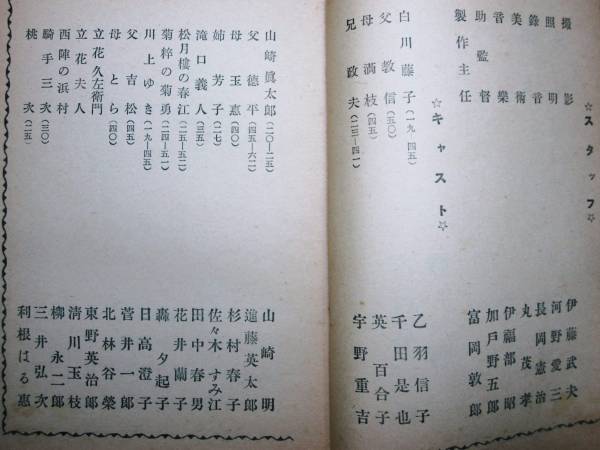 ☆スタッフ☆
撮影 伊藤武夫
照明 河野愛三
録音 長岡憲治
美術 丸茂孝
音楽 伊福部昭
助監督 加戸野五郎
製作主任 富岡敦郎
☆キャスト☆
白川藤子(一九―四五) 乙羽信子
父教信(五〇) 千田是也
母満枝(四五) 英百合子
兄政夫(二三―四一) 宇野重吉
山崎眞太郎(二〇―二五) 山崎明
父徳平(四五―六二) 進藤英太郎
母玉恵(四〇) 杉村春子
姉芳子(二七) 佐々木すみ江
滝口義人(三五) 田中春男
松月樓の春江(二五―五二) 花井蘭子
菊粹の菊勇(二四―五一) 轟夕起子
川上ゆき(一九―四五) 日高澄子
父吉松(四五) 菅井一郎
母とら(四〇) 北林谷榮
立花久左衛門 東野英治郎
立花夫人 清川玉枝
西陣の浜村 柳永二郎
騎手三次(三〇) 三井弘次
桃次(二五) 利根はる惠